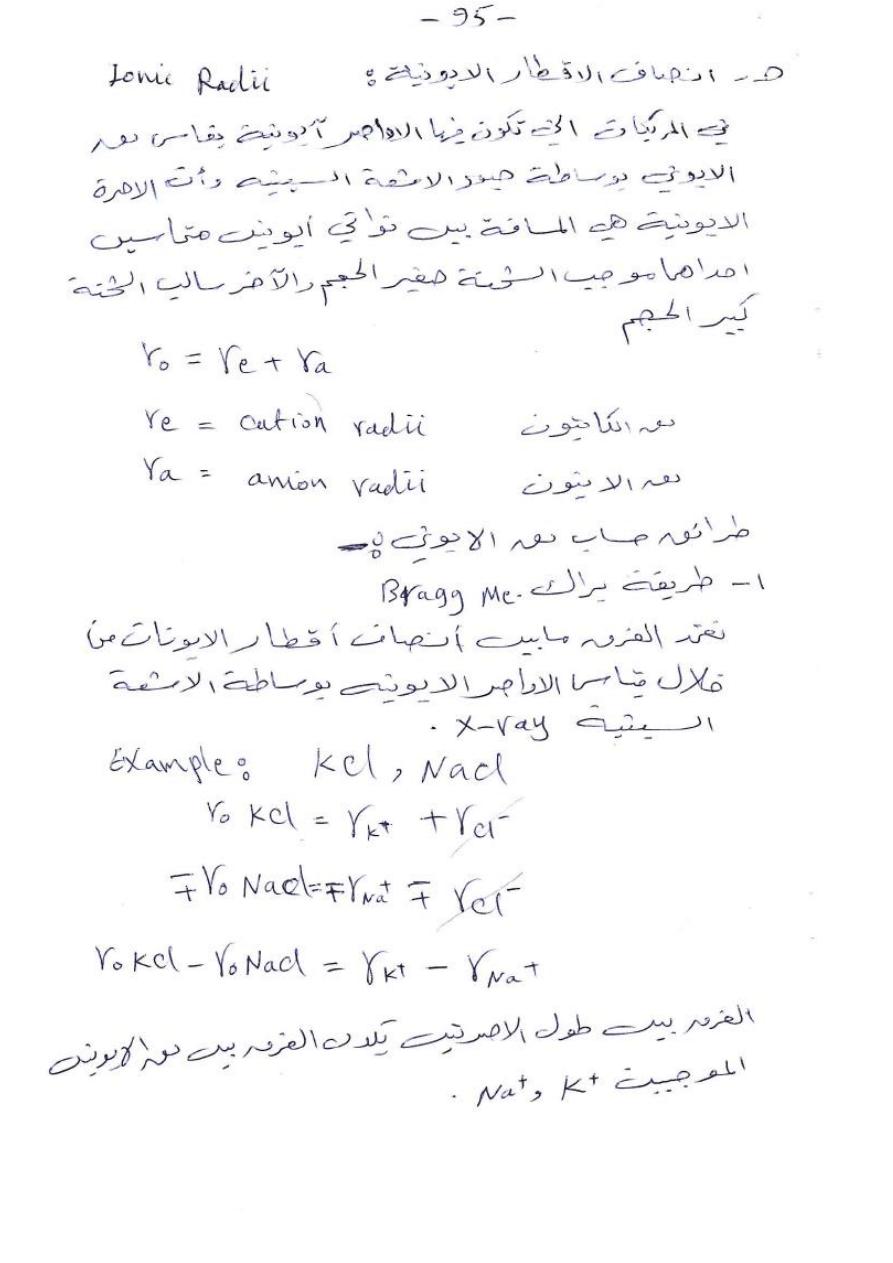 - 95 -
هـ - انصاف الاقطار الايونية : Ionic Radii
في المركبات التي تكون فيها الاواصر آيونية يقاس نق
الايوني بوساطة حيود الاشعة السينيه وأن الاصرة
الايونية هي المسافة بين نواتي أيونين متماسين
احداهما موجب الشحنة صغير الحجم والآخر سالب الشحنة
كبير الحجم
r₀ = re + ra
re = cation radii نق الكاتيون
ra = anion radii نق الانيون
طرائق حساب نق الايوني :-
١- طريقة براك Bragg Me.
تعتمد الفرق مابين أنصاف أقطار الايونات من
خلال قياس الاواصر الايونيه بوساطة الاشعة
السينية x-ray .
Example : KCl , NaCl
r₀ KCl = rK⁺ + rCl⁻
∓r₀ NaCl = ∓rNa⁺ ∓ rCl⁻
r₀ KCl - r₀ NaCl = rK⁺ - rNa⁺
الفرق بين طول الاصرتين الفرق بين نق الايونين
الموجبين K⁺ و Na⁺ .